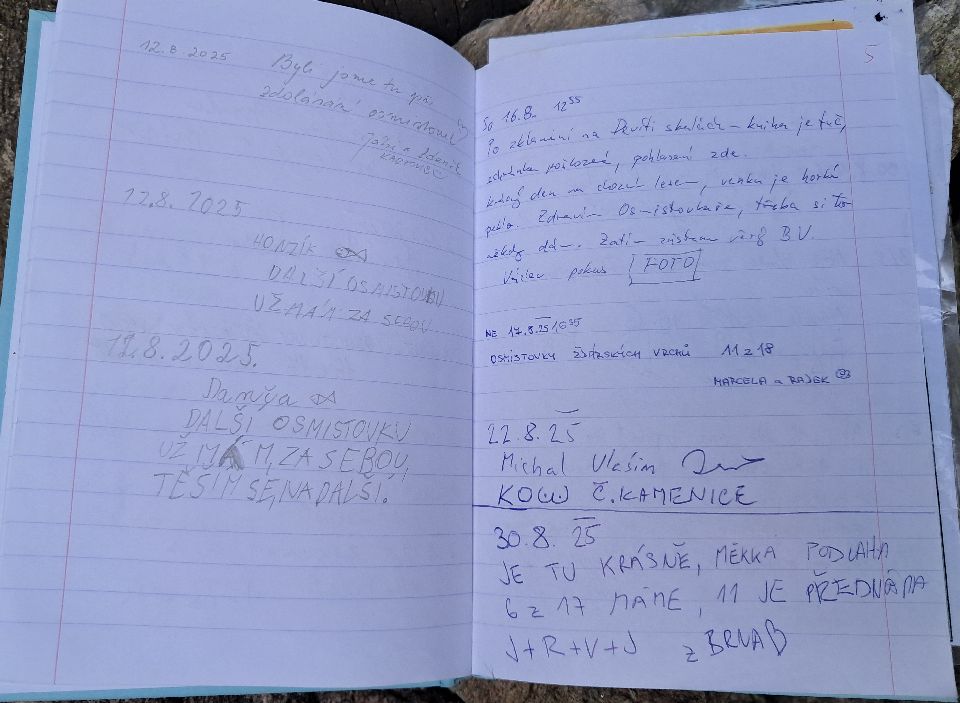 12.8.2025 Byli jsme tu při
zdolávání osmistovek
a Zdeněk
12.8.2025
HONZÍK
DALŠÍ OSMISTOVKU
UŽ MÁM ZA SEBOU
12.8.2025.
DALŠÍ OSMISTOVKU
UŽ MÁM, ZA SEBOU,
TĚŠÍM SE, NA DALŠÍ.
5
So 16.8. 12 55
Po zklamání na Devíti skalách – kniha je fuč,
schránka poškozená, pohlazení zde.
lesem, venku je horké
Zdravím Osmistovkaře, třeba si to
někdy dám. Zatím B.V.
pokus FOTO
NE 17.8.25 16 35
OSMISTOVKY ŽĎÁRSKÝCH VRCHŮ 11 z 18
MARCELA a RADEK
22.8.25
Michal Vlašim
Č.KAMENICE
30.8.25
JE TU KRÁSNĚ, MĚKKA PODLAHA
6 z 17 MÁME, 11 JE PŘED NÁMA
J+R+V+J z BRNA